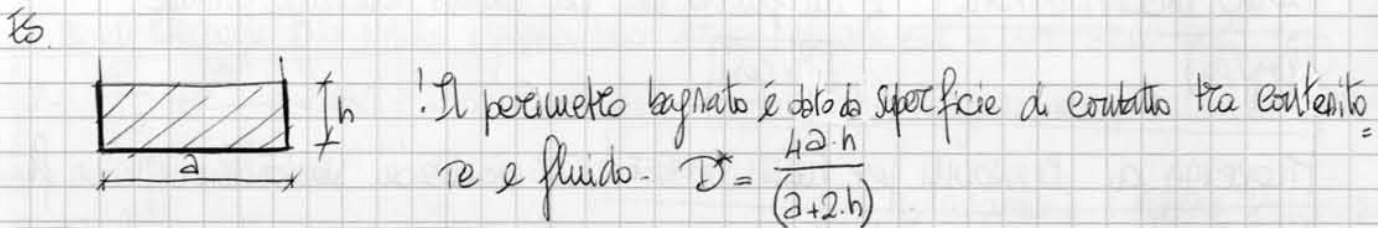 ES.
h
a
! Il perimetro bagnato è dato da superficie di contatto tra contenito=
re e fluido. D* = 4a·h / (a+2·h)